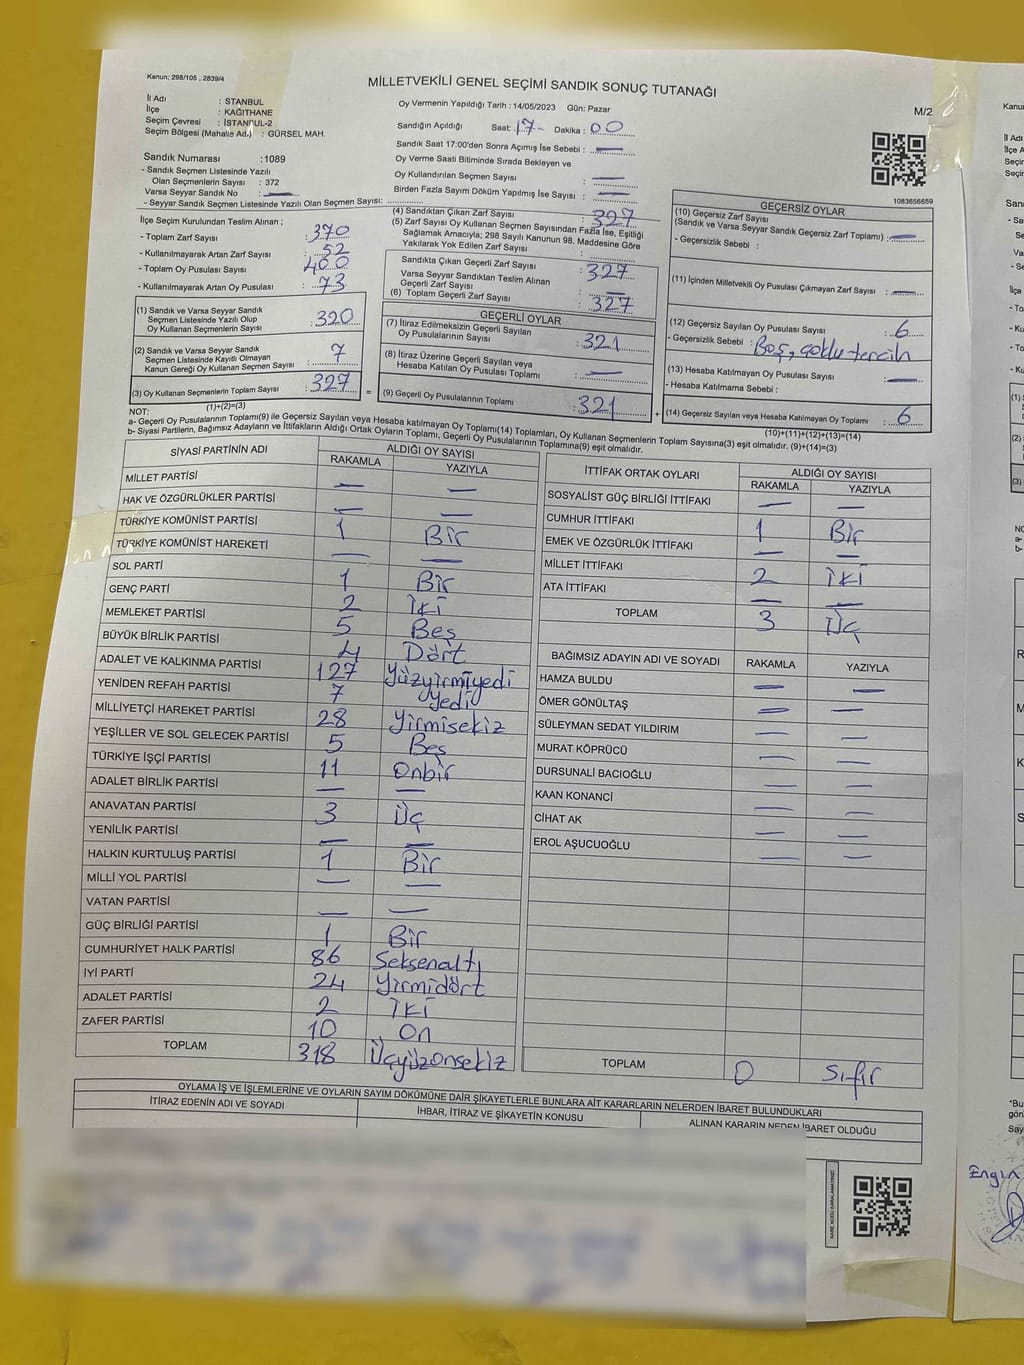 Kanun: 298/105 , 2839/4
MİLLETVEKİLİ GENEL SEÇİMİ SANDIK SONUÇ TUTANAĞI
M/2
İl Adı : STANBUL
İlçe : KAĞITHANE
Seçim Çevresi : İSTANBUL-2
Seçim Bölgesi (Mahalle Ad.) : GÜRSEL MAH.
Oy Vermenin Yapıldığı Tarih : 14/05/2023 Gün: Pazar
Sandığın Açıldığı Saat: 17- Dakika : 00
Sandık Saat 17:00'den Sonra Açımış İse Sebebi : —
Oy Verme Saati Bitiminde Sırada Bekleyen ve
Oy Kullandırılan Seçmen Sayısı : —
Birden Fazla Sayım Döküm Yapılmış İse Sayısı : —
1083656659
Sandık Numarası :1089
- Sandık Seçmen Listesinde Yazılı
Olan Seçmenlerin Sayısı : 372
Varsa Seyyar Sandık No : —
- Seyyar Sandık Seçmen Listesinde Yazılı Olan Seçmen Sayısı:
İlçe Seçim Kurulundan Teslim Alınan ;
- Toplam Zarf Sayısı : 370
- Kullanılmayarak Artan Zarf Sayısı : 52
- Toplam Oy Pusulası Sayısı : 400
- Kullanılmayarak Artan Oy Pusulası : 73
(1) Sandık ve Varsa Seyyar Sandık
Seçmen Listesinde Yazılı Olup
Oy Kullanan Seçmenlerin Sayısı : 320
(2) Sandık ve Varsa Seyyar Sandık
Seçmen Listesinde Kayıtlı Olmayan
Kanun Gereği Oy Kullanan Seçmen Sayısı : 7
(3) Oy Kullanan Seçmenlerin Toplam Sayısı : 327
(1)+(2)=(3)
(4) Sandıktan Çıkan Zarf Sayısı : 327
(5) Zarf Sayısı Oy Kullanan Seçmen Sayısından Fazla İse, Eşitliği
Sağlamak Amacıyla; 298 Sayılı Kanunun 98. Maddesine Göre
Yakılarak Yok Edilen Zarf Sayısı :
Sandıkta Çıkan Geçerli Zarf Sayısı : 327
Varsa Seyyar Sandıktan Teslim Alınan
Geçerli Zarf Sayısı : —
(6) Toplam Geçerli Zarf Sayısı : 327
GEÇERLİ OYLAR
(7) İtiraz Edilmeksizin Geçerli Sayılan
Oy Pusulalarının Sayısı : 321
(8) İtiraz Üzerine Geçerli Sayılan veya
Hesaba Katılan Oy Pusulası Toplamı : —
= (9) Geçerli Oy Pusulalarının Toplamı : 321
GEÇERSİZ OYLAR
(10) Geçersiz Zarf Sayısı
(Sandık ve Varsa Seyyar Sandık Geçersiz Zarf Toplamı) : —
- Geçersizlik Sebebi :
(11) İçinden Milletvekili Oy Pusulası Çıkmayan Zarf Sayısı : —
(12) Geçersiz Sayılan Oy Pusulası Sayısı : 6
- Geçersizlik Sebebi : Boş, çoklu tercih
(13) Hesaba Katılmayan Oy Pusulası Sayısı : —
- Hesaba Katılmama Sebebi :
+ (14) Geçersiz Sayılan veya Hesaba Katılmayan Oy Toplamı : 6
(10)+(11)+(12)+(13)=(14)
NOT:
a- Geçerli Oy Pusulalarının Toplamı(9) ile Geçersiz Sayılan veya Hesaba katılmayan Oy Toplamı(14) Toplamları, Oy Kullanan Seçmenlerin Toplam Sayısına(3) eşit olmalıdır. (9)+(14)=(3)
b- Siyasi Partilerin, Bağımsız Adayların ve İttifakların Aldığı Ortak Oyların Toplamı, Geçerli Oy Pusulalarının Toplamına(9) eşit olmalıdır.
SİYASİ PARTİNİN ADI ALDIĞI OY SAYISI
RAKAMLA YAZIYLA
MİLLET PARTİSİ — —
HAK VE ÖZGÜRLÜKLER PARTİSİ — —
TÜRKİYE KOMÜNİST PARTİSİ 1 Bir
TÜRKİYE KOMÜNİST HAREKETİ — —
SOL PARTİ 1 Bir
GENÇ PARTİ 2 İki
MEMLEKET PARTİSİ 5 Beş
BÜYÜK BİRLİK PARTİSİ 4 Dört
ADALET VE KALKINMA PARTİSİ 127 Yüzyirmiyedi
YENİDEN REFAH PARTİSİ 7 Yedi
MİLLİYETÇİ HAREKET PARTİSİ 28 Yirmisekiz
YEŞİLLER VE SOL GELECEK PARTİSİ 5 Beş
TÜRKİYE İŞÇİ PARTİSİ 11 Onbir
ADALET BİRLİK PARTİSİ — —
ANAVATAN PARTİSİ 3 Üç
YENİLİK PARTİSİ — —
HALKIN KURTULUŞ PARTİSİ 1 Bir
MİLLİ YOL PARTİSİ — —
VATAN PARTİSİ — —
GÜÇ BİRLİĞİ PARTİSİ 1 Bir
CUMHURİYET HALK PARTİSİ 86 Seksenaltı
İYİ PARTİ 24 Yirmidört
ADALET PARTİSİ 2 İki
ZAFER PARTİSİ 10 On
TOPLAM 318 Üçyüzonsekiz
İTTİFAK ORTAK OYLARI ALDIĞI OY SAYISI
RAKAMLA YAZIYLA
SOSYALİST GÜÇ BİRLİĞİ İTTİFAKI — —
CUMHUR İTTİFAKI 1 Bir
EMEK VE ÖZGÜRLÜK İTTİFAKI — —
MİLLET İTTİFAKI 2 İki
ATA İTTİFAKI — —
TOPLAM 3 Üç
BAĞIMSIZ ADAYIN ADI VE SOYADI RAKAMLA YAZIYLA
HAMZA BULDU — —
ÖMER GÖNÜLTAŞ — —
SÜLEYMAN SEDAT YILDIRIM — —
MURAT KÖPRÜCÜ — —
DURSUNALİ BACIOĞLU — —
KAAN KONANCİ — —
CİHAT AK — —
EROL AŞUCUOĞLU — —
TOPLAM 0 Sıfır
OYLAMA İŞ VE İŞLEMLERİNE VE OYLARIN SAYIM DÖKÜMÜNE DAİR ŞİKAYETLERLE BUNLARA AİT KARARLARIN NELERDEN İBARET BULUNDUKLARI
İTİRAZ EDENİN ADI VE SOYADI İHBAR, İTİRAZ VE ŞİKAYETİN KONUSU ALINAN KARARIN NEDEN İBARET OLDUĞU
KARE KODU KARALAMAYINIZ!
Engin